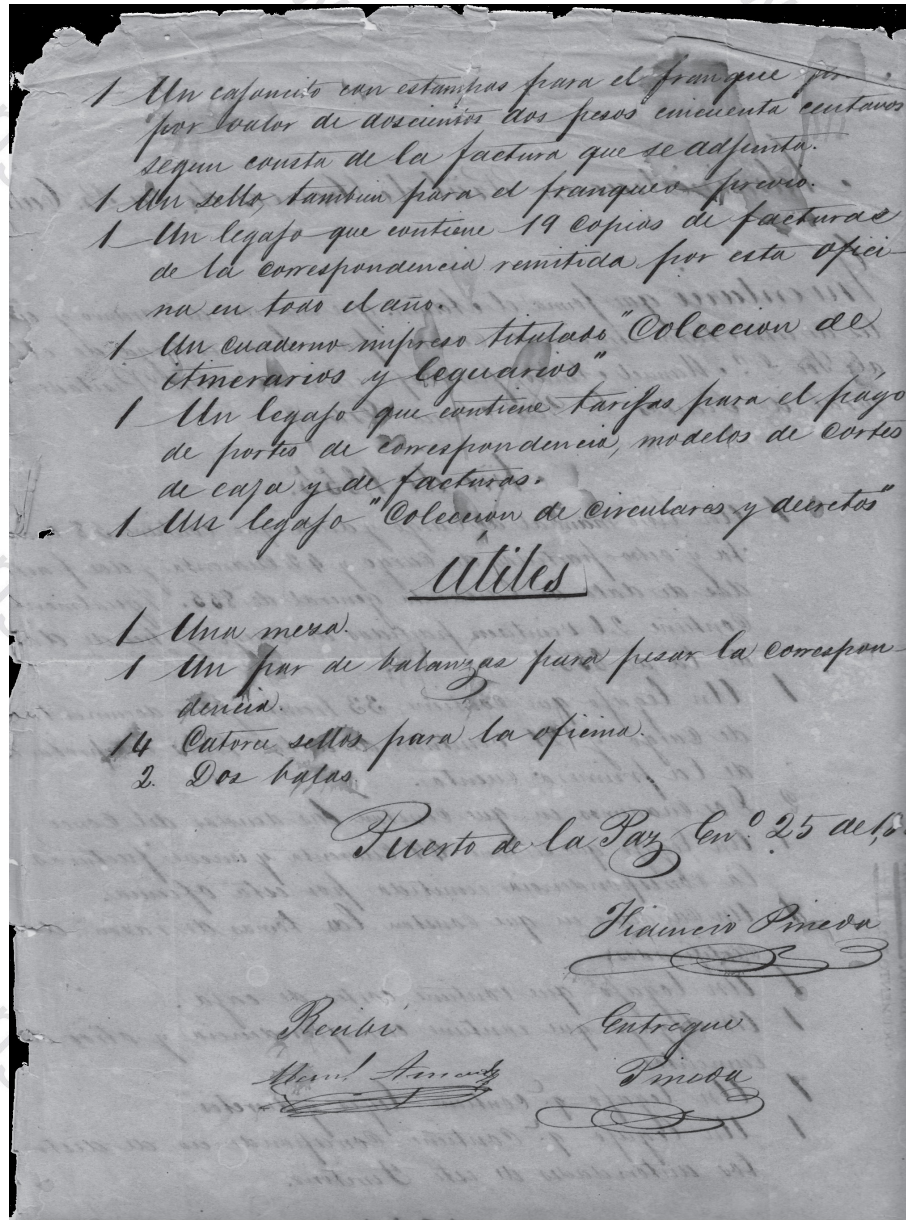 1 Un cajoncito con estampas para el franque
por valor de doscientos dos pesos cincuenta centavos
segun consta de la factura que se adjunta.
1 Un sello tambien para el franqueo previo.
1 Un legajo que contiene 19 copias de facturas
de la correspondencia remitida por esta ofici-
na en todo el año.
1 Un cuaderno impreso titulado "Coleccion de
itinerarios y leguarios"
1 Un legajo que contiene tarifas para el pago
de portes de correspondencia, modelos de cortes
de caja y de facturas.
1 Un legajo "Coleccion de circulares y decretos"
Utiles
1 Una mesa.
1 Un par de balanzas para pesar la correspon-
dencia.
14 Catorce sellos para la oficina.
2. Dos balas.
Puerto de la Paz En.º 25 de
Fidencio Pineda
Recibí Entregue
Pineda